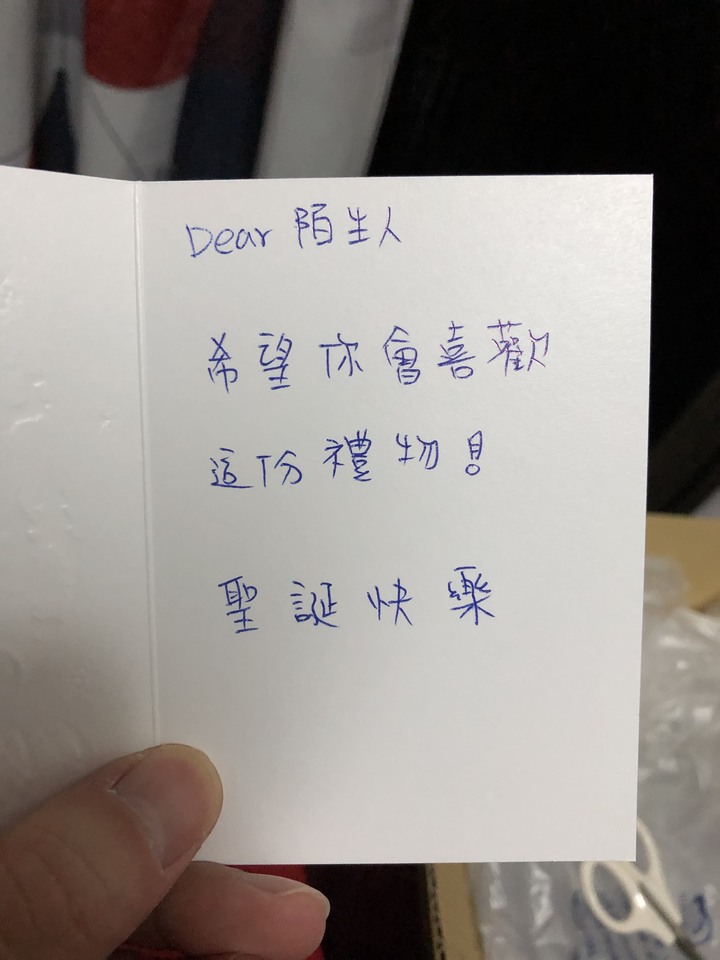 Dear 陌生人
希望你會喜歡
這份禮物!
聖誕快樂